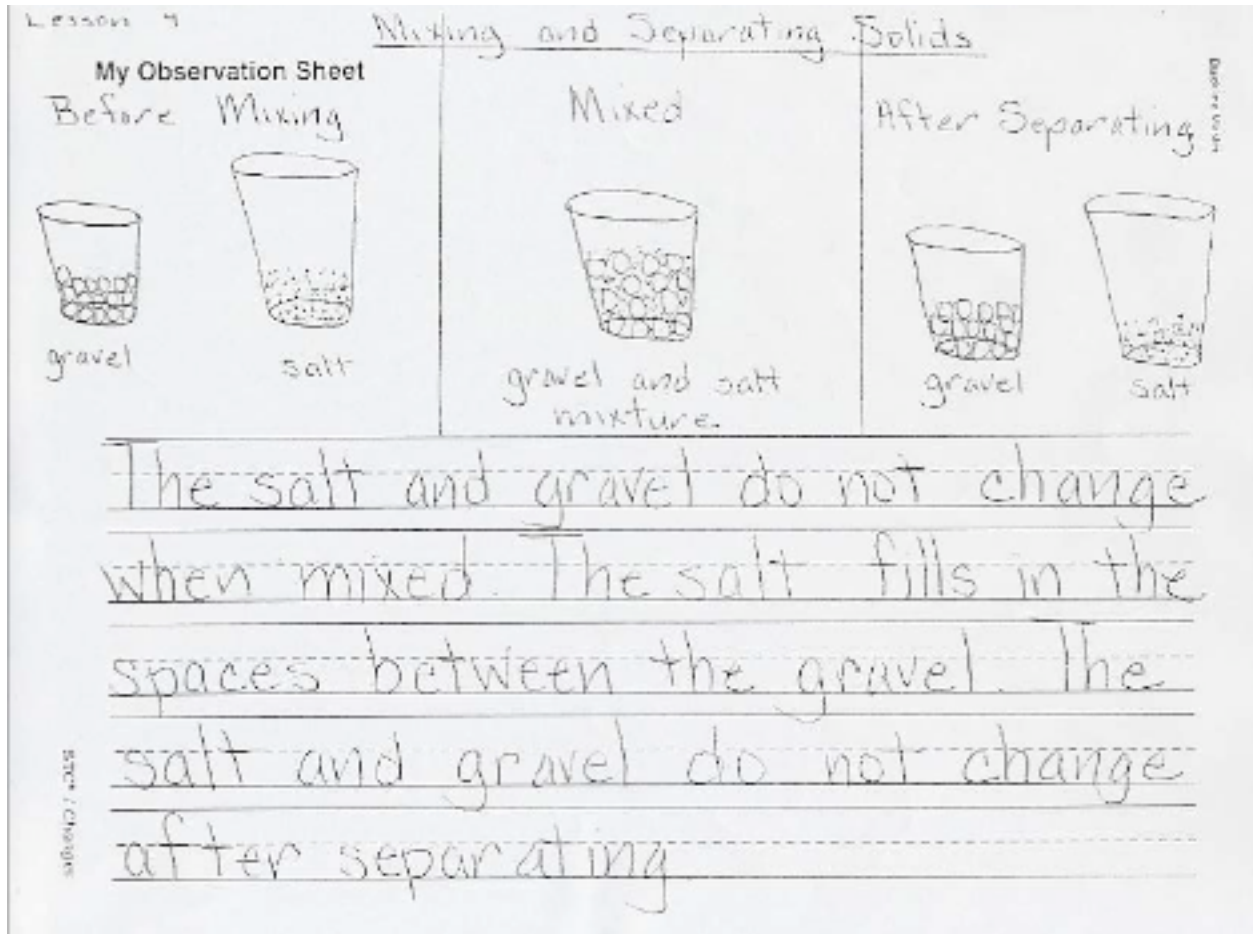 Lesson 4
Mixing and Separating Solids
My Observation Sheet
Before Mixing
Mixed
After Separating
gravel
salt
gravel and salt
mixture.
gravel
salt
The salt and gravel do not change
when mixed. The salt fills in the
spaces between the gravel. The
salt and gravel do not change
after separating
STC / Changes